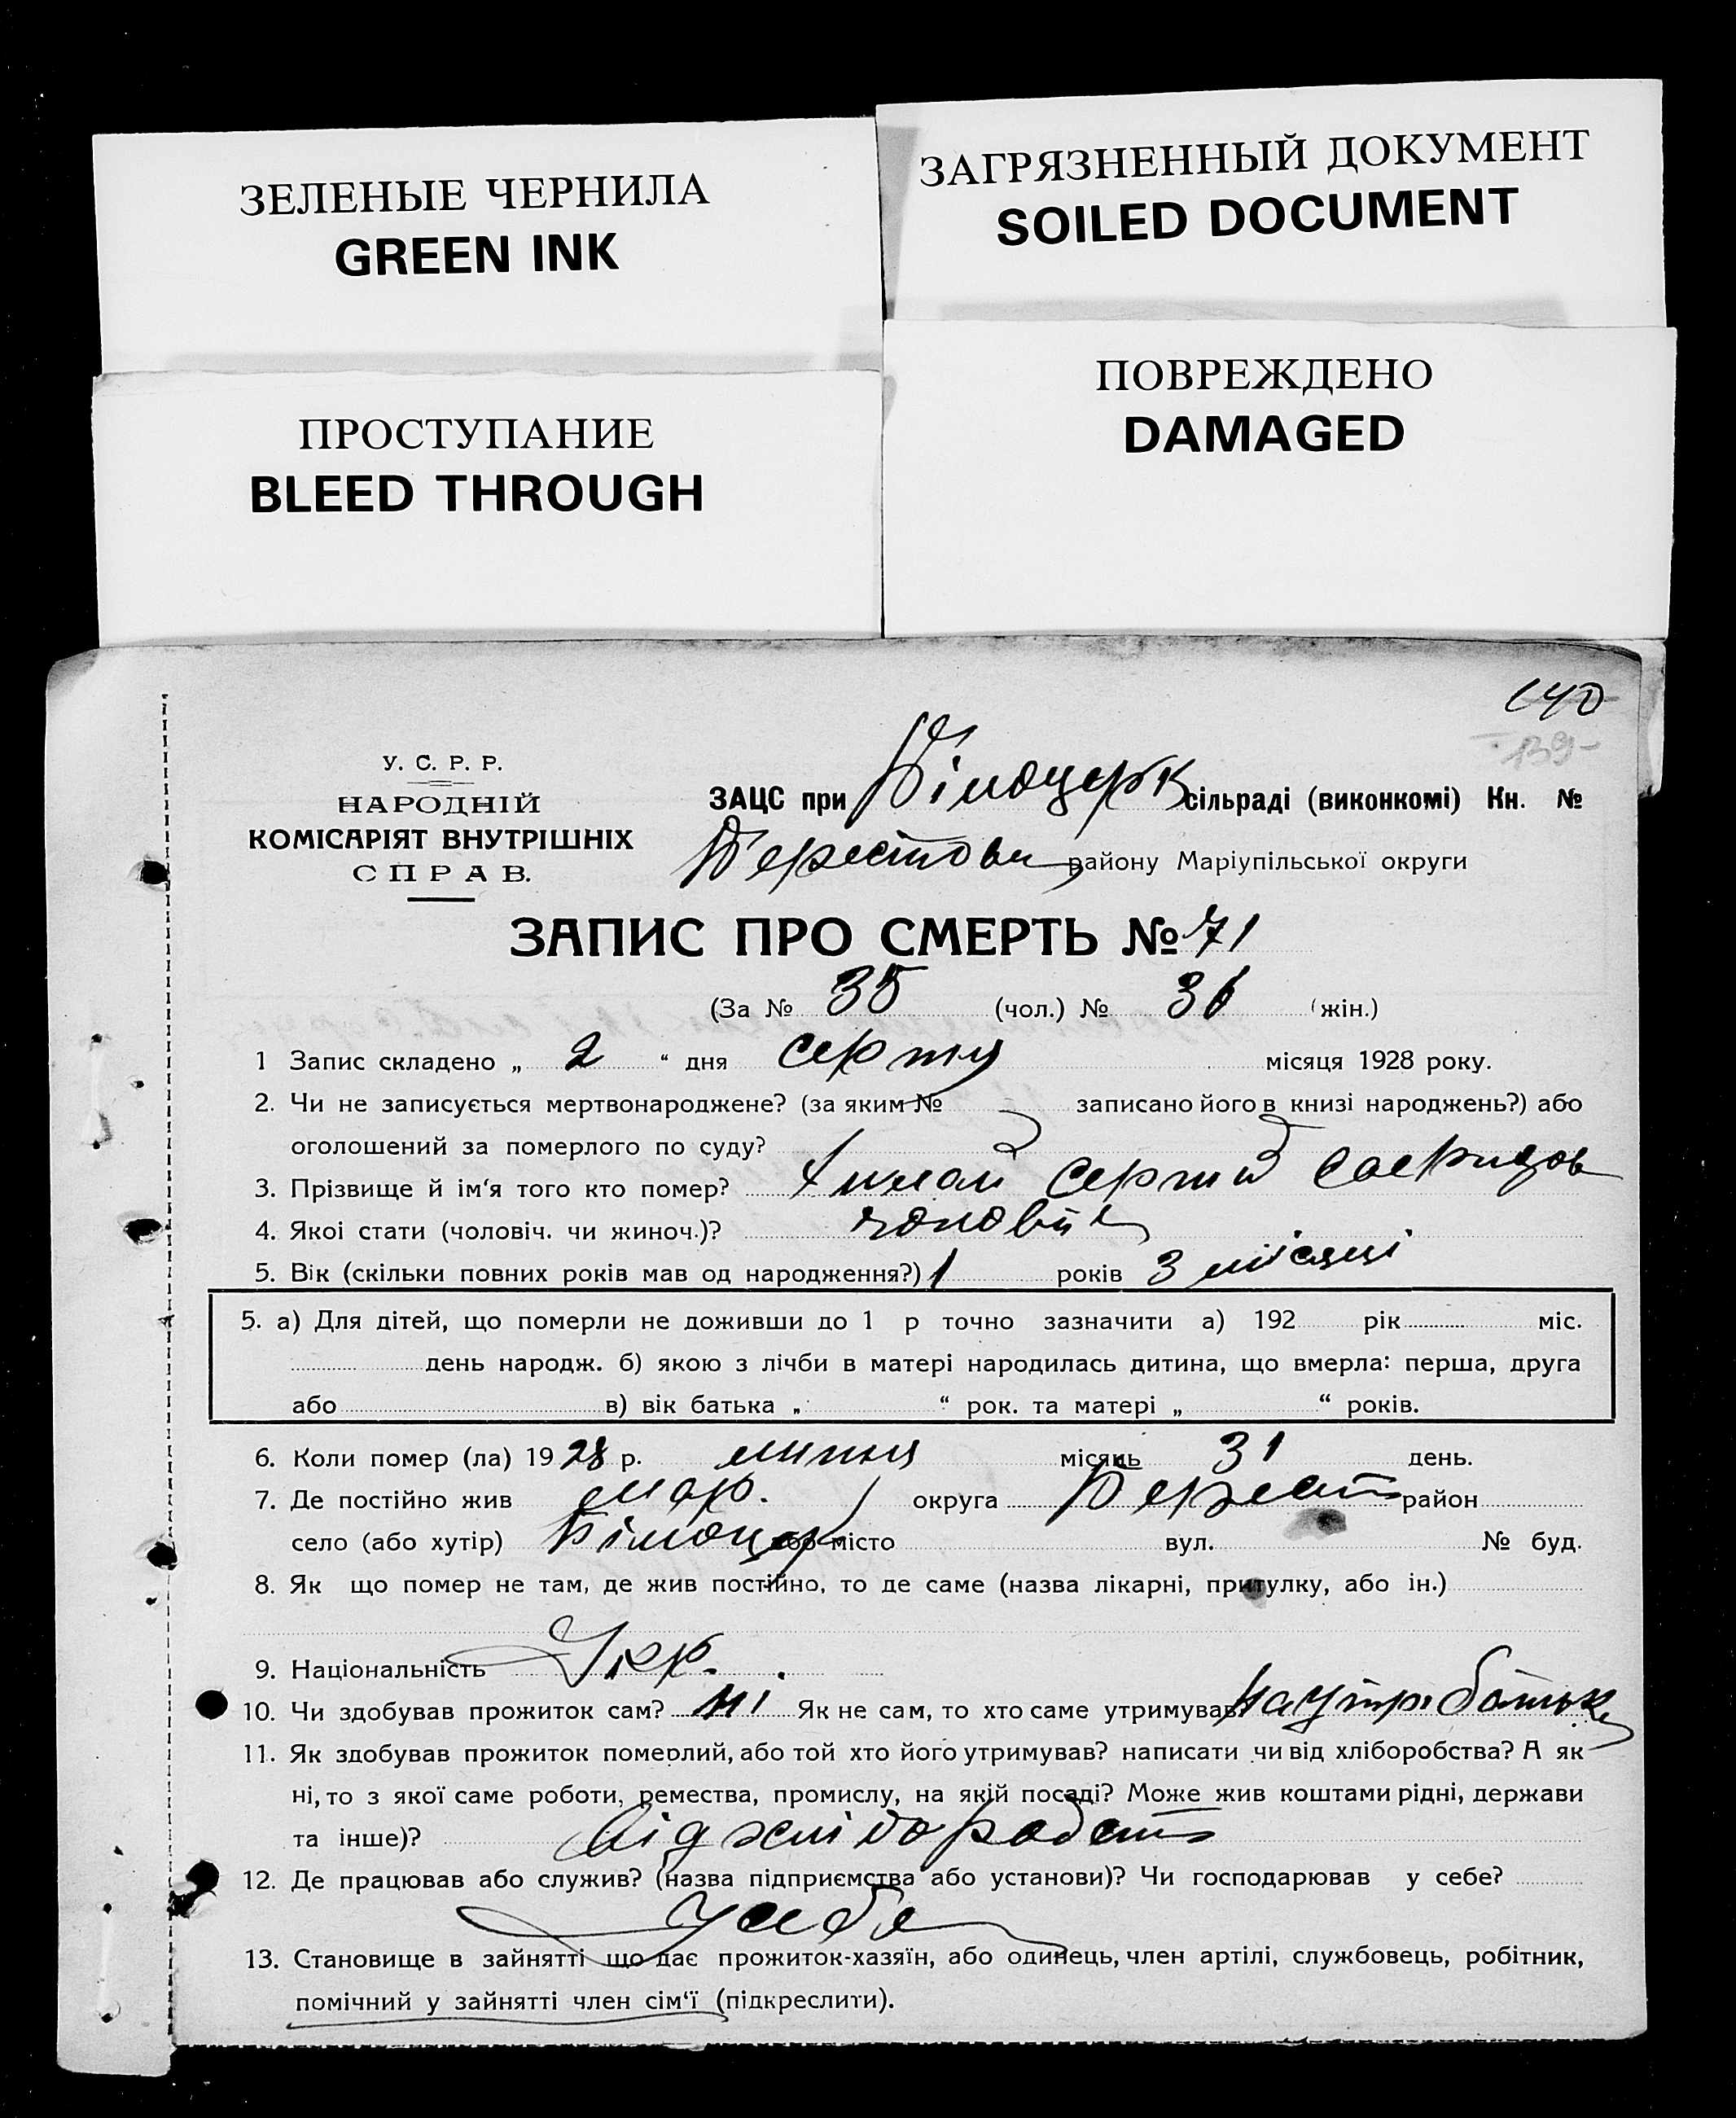 ЗЕЛЕНЫЕ ЧЕРНИЛА
GREEN INK
ЗАГРЯЗНЕННЫЙ ДОКУМЕНТ
SOILED DOCUMENT
ПРОСТУПАНИЕ
BLEED THROUGH
ПОВРЕЖДЕНО
DAMAGED
140
139
У. С. Р. Р.
НАРОДНІЙ
КОМІСАРІЯТ ВНУТРІШНІХ
СПРАВ.
ЗАЦС при Білоцерк сільраді (виконкомі) Кн. №
Берестови району Маріупільської округи
ЗАПИС ПРО СМЕРТЬ № 71
(За № 35 (чол.) № 36 (жін.)
1 Запис складено „ 2 “ дня серпня місяця 1928 року.
2. Чи не записується мертвонароджене? (за яким № записано його в книзі народжень?) або
оголошений за померлого по суду?
3. Прізвище й ім'я того кто помер? Сергій
4. Якої стати (чоловіч. чи жиноч.)? чоловік
5. Вік (скільки повних років мав од народження?) 1 років 3 місяці
5. а) Для дітей, що померли не доживши до 1 р точно зазначити а) 192 рік міс.
день народж. б) якою з лічби в матері народилась дитина, що вмерла: перша, друга
або в) вік батька „ “ рок. та матері „ “ років.
6. Коли помер (ла) 1928 р. липня місяць 31 день.
7. Де постійно жив Мар. округа Берест район
село (або хутір) Білоцер або місто вул. № буд.
8. Як що помер не там, де жив постійно, то де саме (назва лікарні, притулку, або ін.)
9. Національність Укр.
10. Чи здобував прожиток сам? ні Як не сам, то хто саме утримував? на утр. батьк
11. Як здобував прожиток померлий, або той хто його утримував? написати чи від хліборобства? А як
ні, то з якої саме роботи, ремества, промислу, на якій посаді? Може жив коштами рідні, держави
та інше)? від
12. Де працював або служив? (назва підприємства або установи)? Чи господарював у себе?
у себе
13. Становище в зайнятті що дає прожиток-хазяїн, або одинець, член артілі, службовець, робітник,
помічний у зайнятті член сім'ї (підкреслити).